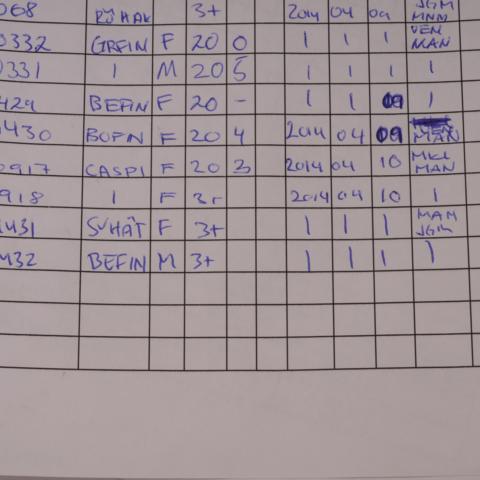 068 RÖHAK 3+ 2014 04 09 JGM
MNM
0332 GRFIN F 20 0 1 1 1 VEN
MAN
0331 1 M 20 5 1 1 1 1
429 BEFIN F 20 - 1 1 09 1
430 BOFIN F 20 4 2014 04 09 VEN
MAN
0917 CASPI F 20 3 2014 04 10 MKL
MAN
918 1 F 3+ 2014 04 10 1
431 SVHÄT F 3+ 1 1 1 MAM
JGM
432 BEFIN M 3+ 1 1 1 1